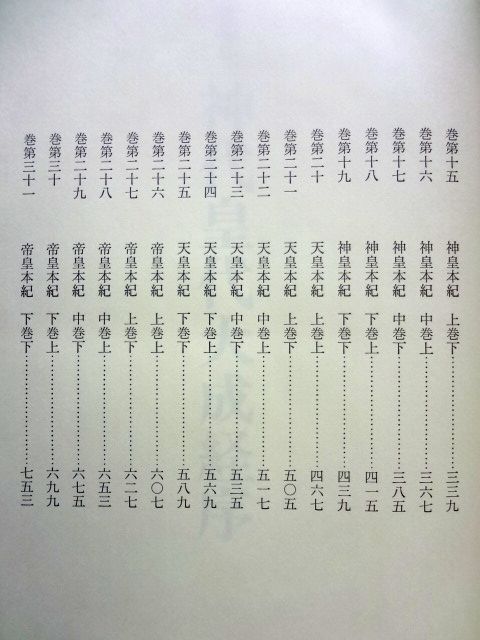 巻第十五 神皇本紀 上巻下…………………三三九
巻第十六 神皇本紀 中巻上…………………三六七
巻第十七 神皇本紀 中巻下…………………三八五
巻第十八 神皇本紀 下巻上…………………四一五
巻第十九 神皇本紀 下巻下…………………四三九
巻第二十 天皇本紀 上巻上…………………四六七
巻第二十一 天皇本紀 上巻下…………………五〇五
巻第二十二 天皇本紀 中巻上…………………五一七
巻第二十三 天皇本紀 中巻下…………………五三五
巻第二十四 天皇本紀 下巻上…………………五六九
巻第二十五 天皇本紀 下巻下…………………五八九
巻第二十六 帝皇本紀 上巻上…………………六〇七
巻第二十七 帝皇本紀 上巻下…………………六二七
巻第二十八 帝皇本紀 中巻上…………………六五三
巻第二十九 帝皇本紀 中巻下…………………六七五
巻第三十 帝皇本紀 下巻上…………………六九九
巻第三十一 帝皇本紀 下巻下…………………七五三